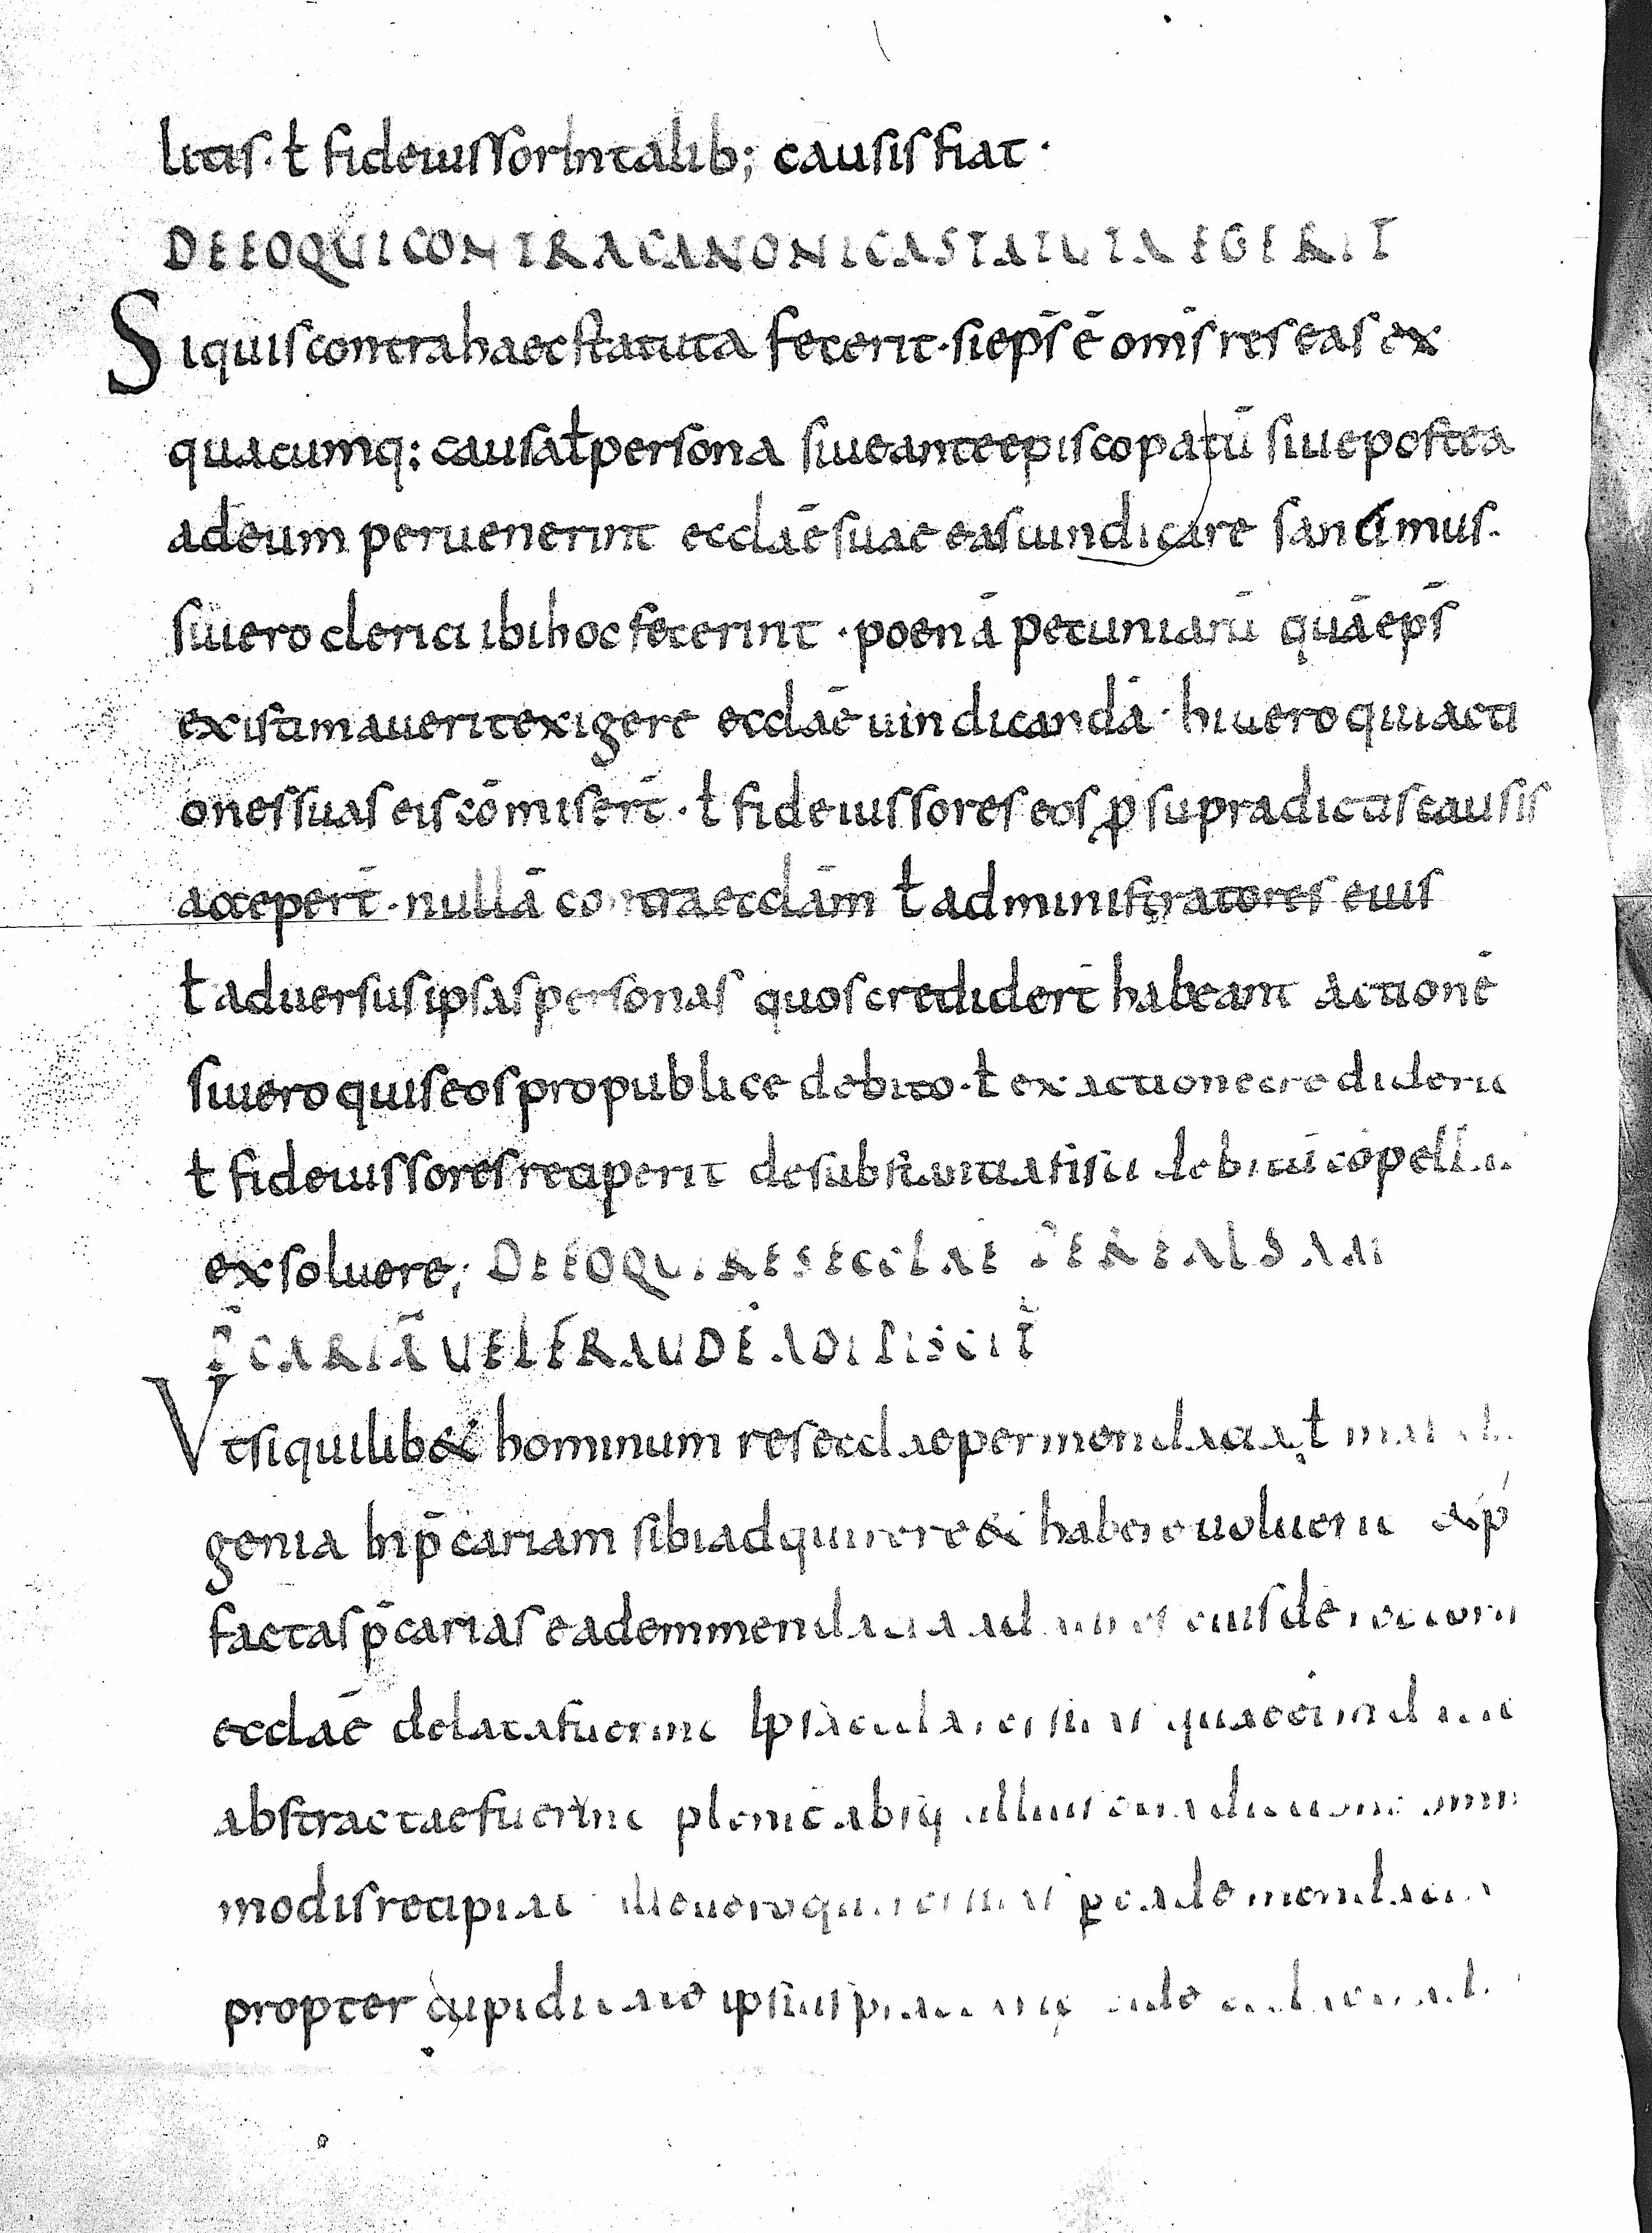 litis · ł fideiussor In talib; causis fiat ·
DE EO QUI CONTRA CANONICA STATUTA EGERIT
Si quis contra haec statuta fecerit · si ep̄s ē om̄s res eas ex
quacumq; causa ł persona siue ante episcopatū siue postea
ad eum peruenerint eccłaē suae eas uindicare sancimus ·
si uero clerici ibi hoc fecerint · poenā pecuniarū quā ep̄s
existimauerit exigere eccłaē uindicandā · hi uero qui acti
ones suas eis cōmiserīt · ł fideiussores eos ꝓ supradictis causis
acceperīt · nullā contra eccłām ł administratores eius
ł aduersus ipsas personas quos crediderīt habeant actionē
si uero quis eos pro publice debito · ł exactione crediderit
ł fideiussores receperit de substantia sua debitū cōpell
exsoluere; DE EO QUI RES ECCLAE PER FALSAM
P̄CARIĀ UEL FRAUDĒ ADIPISCIT̄
Ut si quilib& hominum res eccłae per mendacia ł mal
genia In p̄cariam sibi adquirere & habere uoluerit & p
factas p̄carias eadem mendacia ad aures eiusdē rectoris
eccłaē delata fuerint Ipsa eccła res suas quae eī mendacit
abstractae fuerint plenit̄ absq; ullius contradictione omni
modis recipiat ille uero qui res suas ꝑ eadē mendacia
propter cupiditatē ipsius